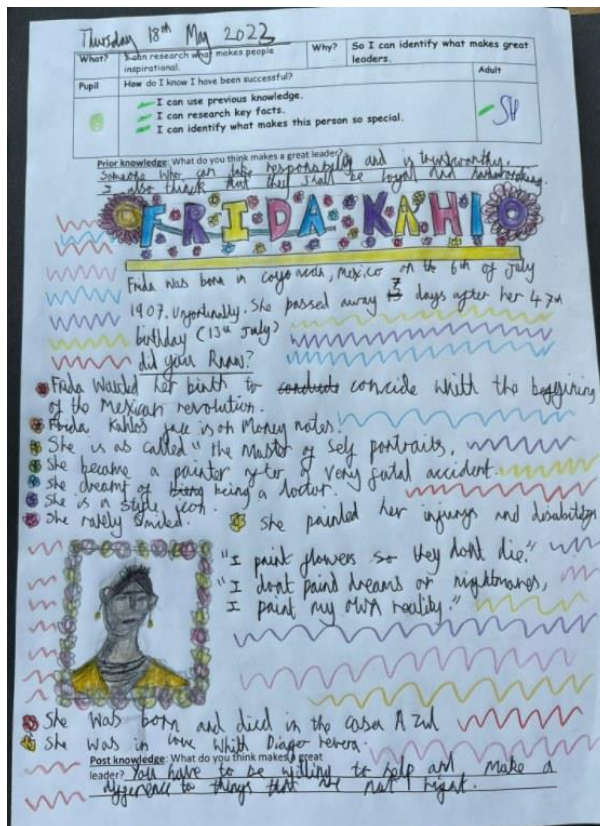 Thursday 18th May 2023
What?
I can research what makes people inspirational.
Why?
So I can identify what makes great leaders.
Pupil
How do I know I have been successful?
Adult
I can use previous knowledge.
I can research key facts.
I can identify what makes this person so special.
Prior knowledge: What do you think makes a great leader?
Someone who can take responsibility and is trustworthy.
I also think that they shall be loyal and hardworking.
FRIDA KAHLO
Frida was born in coyoacan, Mexico on the 6th of July
1907. Unfortinally. She passed away 7 days after her 47th
birthday (13th July)
did you know?
Frida Wanted her birth to concide whith the beggining
of the Mexican revolution.
Frida Kahlo's face is on Money notes.
She is as called "the master of self portraits.
She became a painter after a very fatal accident.
She dreamt of being a doctor.
She is a style icon.
She rarely smiled.
She painted her injurys and disabilitys
"I paint flowers so they dont die."
"I dont paind dreams or nightmares,
I paint my own reality."
She was born and died in the casa Azul
She was in love whith Diago revera.
Post knowledge: What do you think makes a great
leader? You have to be willing to help and make a
difference to things that are not right.